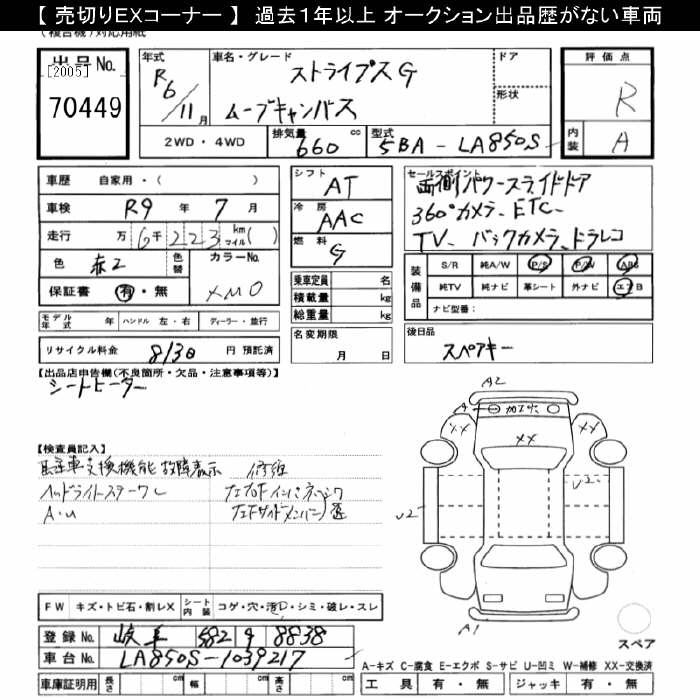 【 売切りEXコーナー 】 過去1年以上 オークション出品歴がない車両
(複合機)対応用紙
出品No.
[2005]
70449
年式
R6/11月
車名・グレード
ストライプスG
ムーブキャンバス
ドア
形状
2WD・4WD
排気量
660 cc
型式
5BA-LA850S
評価点
R
内装
A
車歴 自家用・( )
車検 R9年 7月
走行 万6千223 kmマイル( )
色 赤2 色替
カラーNo. XMO
保証書 有・無
モデル年式 年 ハンドル 左・右 ディーラー・並行
リサイクル料金 8130 円 預託済
シフト AT
冷房 AAC
燃料 G
乗車定員 名
積載量 kg
総重量 kg
名変期限
月 日
セールスポイント
両側パワースライドドア
360°カメラ、ETC、
TV、バックカメラ、ドラレコ
装備品
S/R 純A/W P/S P/W ABS
純TV 純ナビ 革シート 外ナビ エアB
ナビ型番:
後日品
スペアキー
【出品店申告欄(不良箇所・欠品・注意事項等)】
シートヒーター
【検査員記入】
駐車支援機能故障表示 修復
ヘッドライトステーワレ
A・U
A2
A 加工穴
XX XX XX
U2 U2
A1
スペア
FW キズ・トビ石・割レX シート内装 コゲ・穴・汚レ・シミ・破レ・スレ
登録No. 岐阜 582 9 8838
車台No. LA850S-1039217
車庫証明用 長さ cm 幅 cm 高さ cm
A-キズ C-腐食 E-エクボ S-サビ U-凹ミ W-補修 XX-交換済
工具 有・無 ジャッキ 有・無